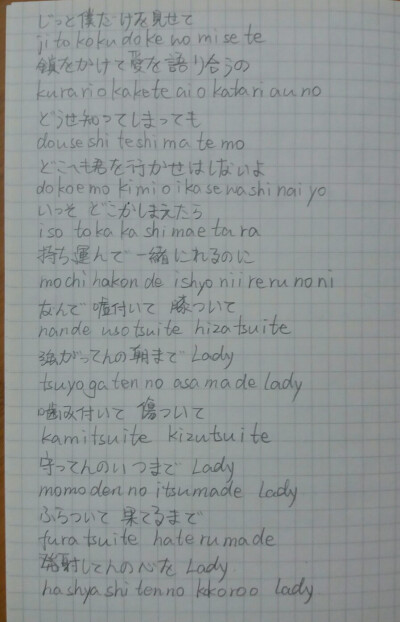 じっと僕だけを見せて
jitokokudokenomisete
鎖をかけて愛を語り合うの
kurariokakete aiokatariauno
どうせ知ってしまっても
douseshiteshimatemo
どこへも君を行かせはしないよ
dokoemokimioikasenashinaiyo
いっそ どこかしまえたら
iso tokakashimaetara
持ち運んで一緒にれるのに
mochihakonde ishyoniirerunoni
なんで 嘘付いて 膝ついて
nande usotsuite hizatsuite
強がってんの朝まで Lady
tsuyogatenno asamade lady
噛み付いて 傷ついて
kamitsuite kizutsuite
守ってんのいつまで Lady
momodenno itsumade Lady
ふらついて 果てるまで
furatsuite haterumade
射してんの心を Lady
hashyashitenno kokoroo lady